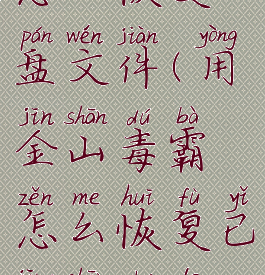 pán wén jiàn yòng
盘文件(用
jīn shān dú bà
金山毒霸
zěn me huī fù yǐ
怎么恢复已